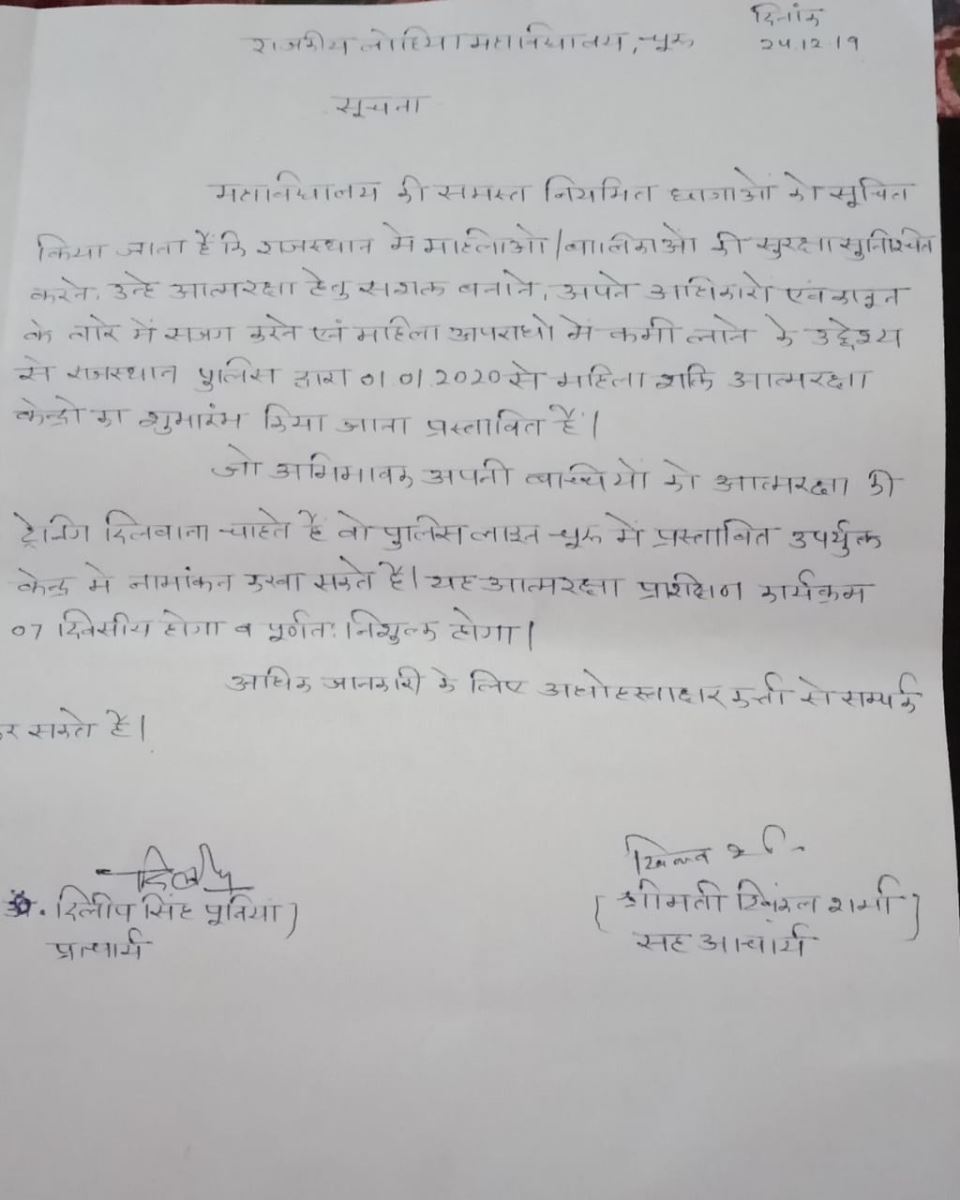 दिनांक
राजकीय लोहिया महाविद्यालय, चूरू 24.12.19
सूचना
महाविद्यालय की समस्त नियमित छात्राओं को सूचित
किया जाता हैं कि राजस्थान मे महिलाओ/बालिकाओ की सुरक्षा सुनिश्चित
करने, उन्हे आत्मरक्षा हेतु सशक्त बनाने, अपने अधिकारो एवं कानून
के बारे में सजग करने एवं महिला अपराधो में कमी लाने के उद्देश्य
से राजस्थान पुलिस द्वारा 01.01.2020 से महिला शक्ति आत्मरक्षा
केन्द्रो का शुभारंभ किया जाना प्रस्तावित हैं।
जो अभिभावक अपनी बच्चियों को आत्मरक्षा की
ट्रेनिंग दिलवाना चाहते हैं वो पुलिस लाइन चूरू में प्रस्तावित उपर्युक्त
केन्द्र मे नामांकन करवा सकते है। यह आत्मरक्षा प्रशिक्षण कार्यक्रम
07 दिवसीय होगा व पूर्णत: निशुल्क होगा।
अधिक जानकारी के लिए अधोहस्ताक्षरकर्ता से सम्पर्क
कर सकते है।
दिलीप सिंह पूनिया) (श्रीमती शर्मा)
प्राचार्य सह आचार्य